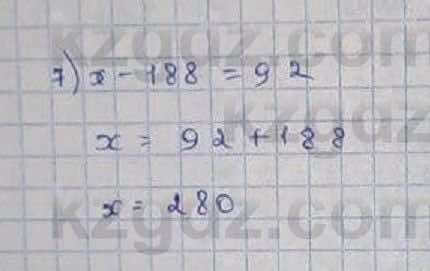 7) x - 188 = 92
x = 92 + 188
x = 280
kzgdz.com
kzgdz
kzgdz.com